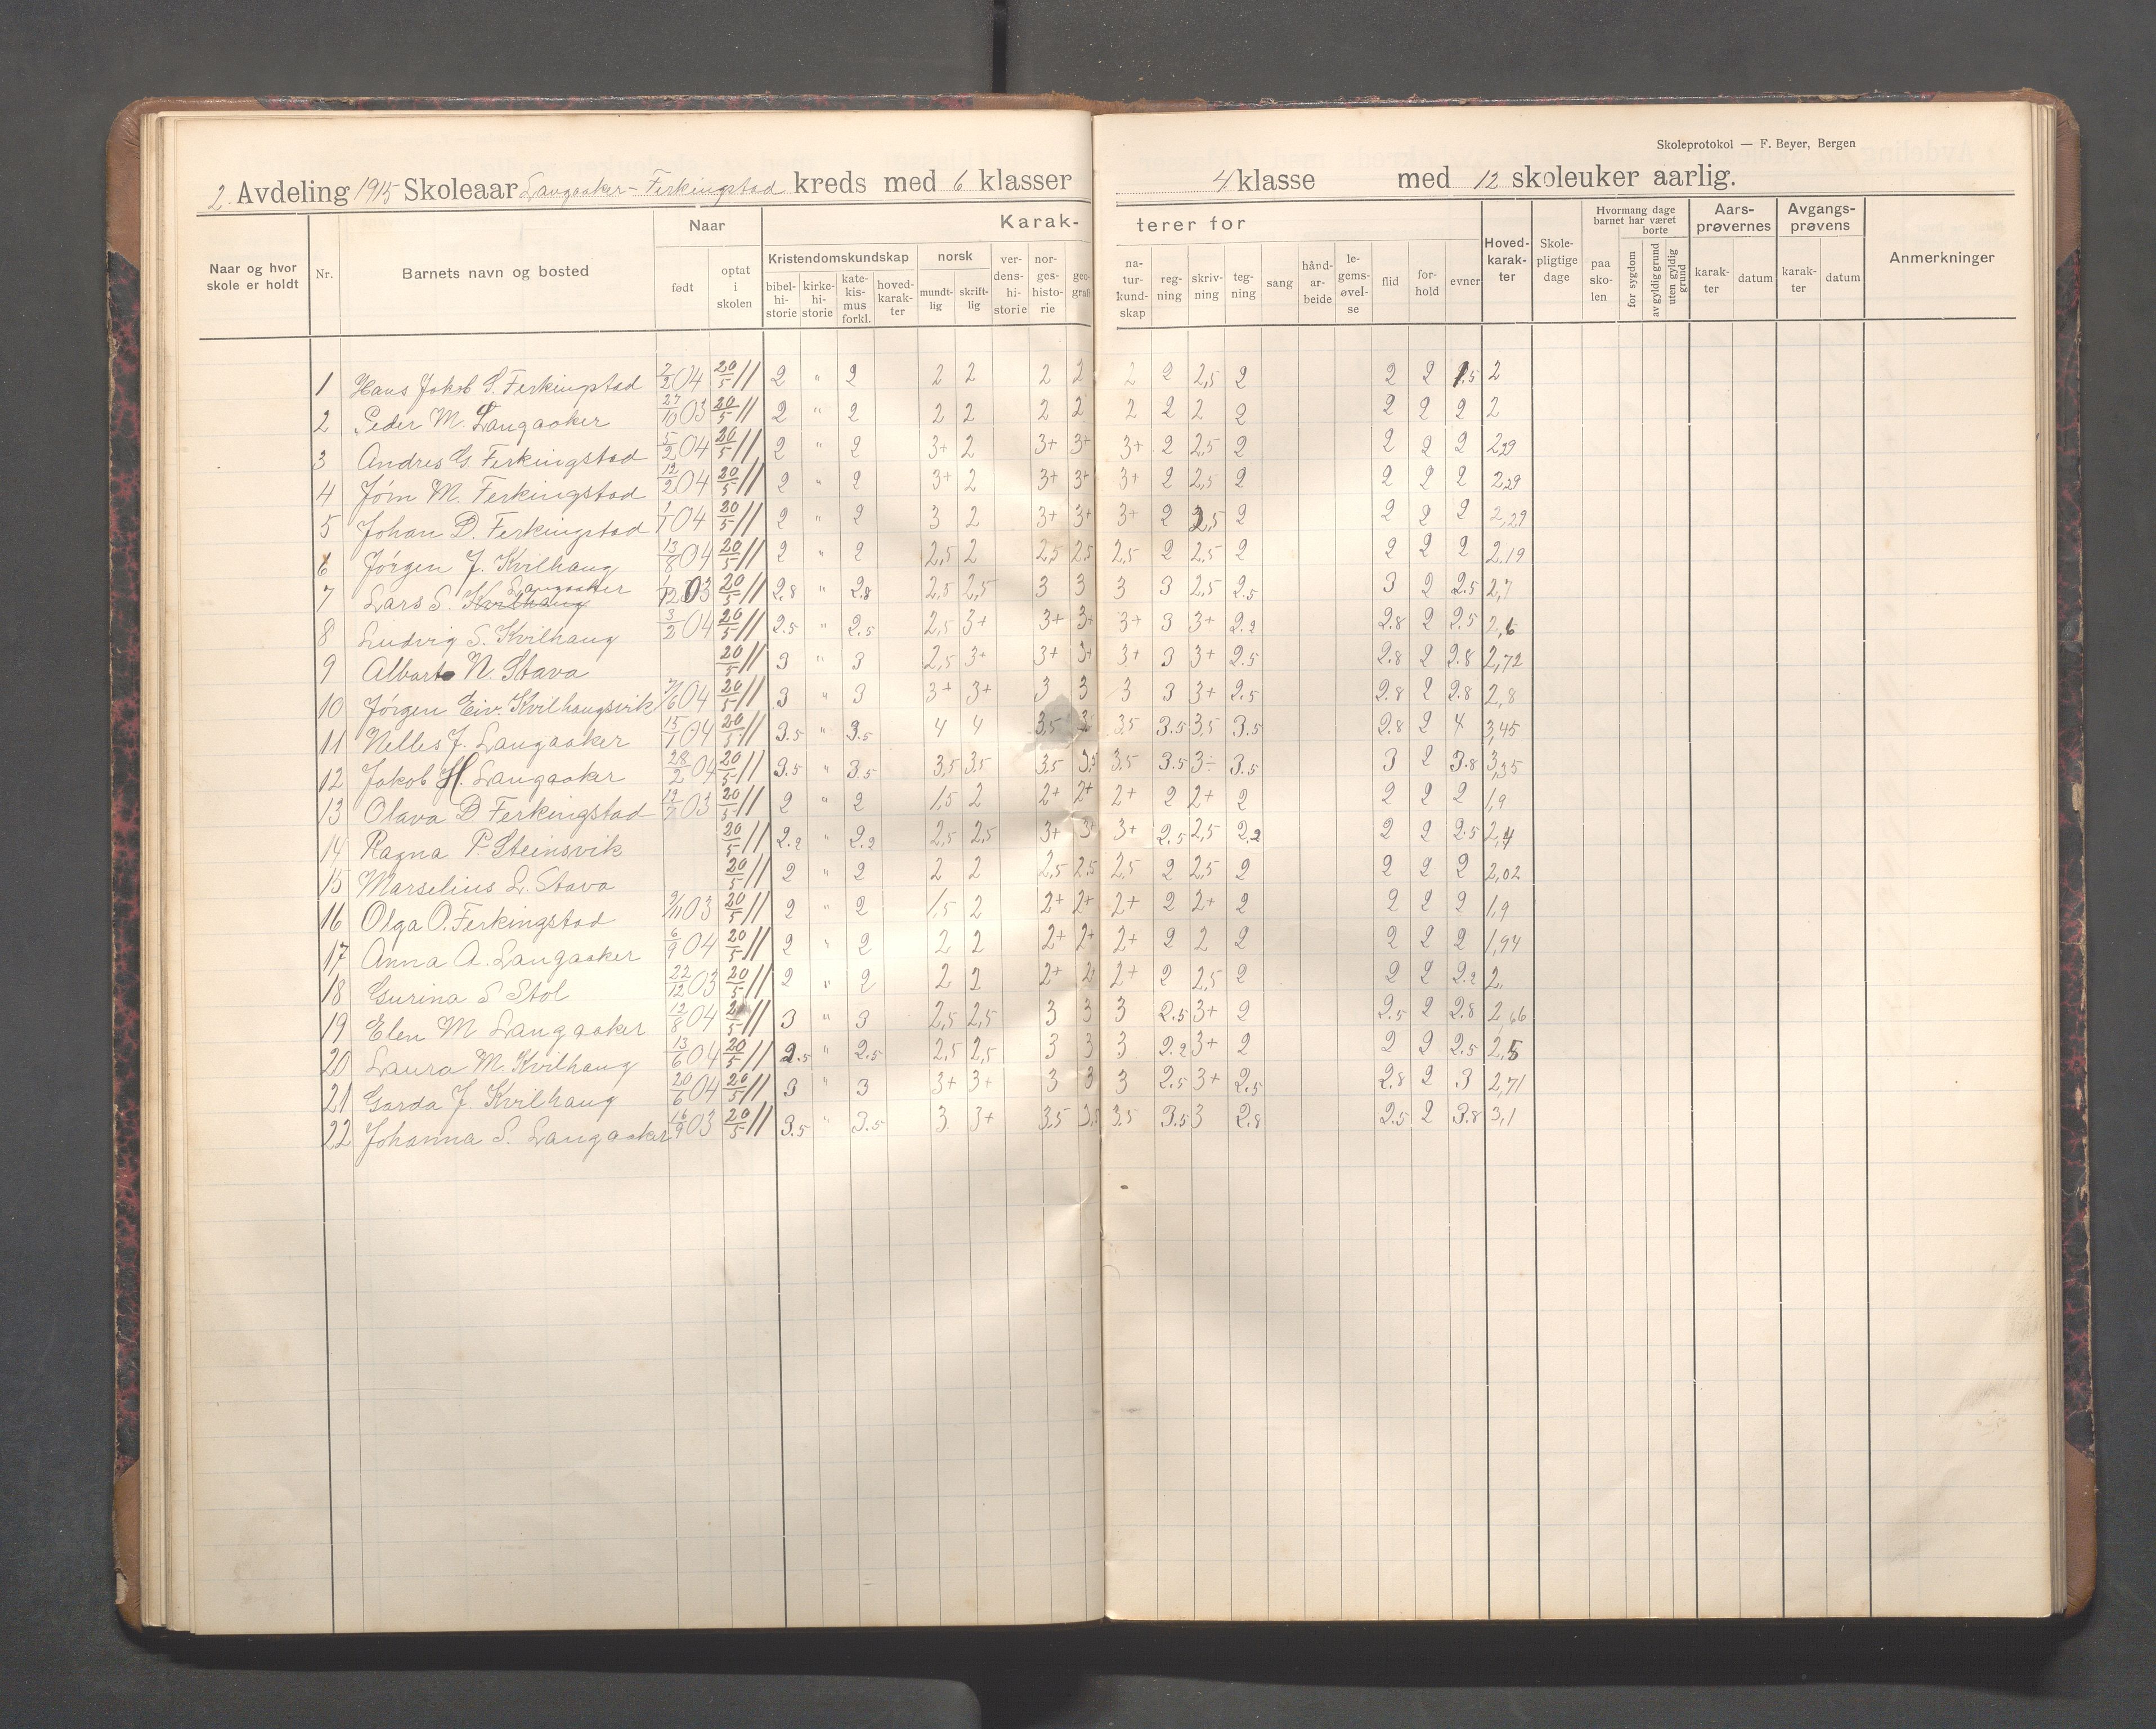 Skoleprotokol — F. Beyer, Bergen
2. Avdeling 1915 Skoleaar Langaaker - Ferkingstad kreds med 6 klasser 4 klasse med 12 skoleuker aarlig.
Naar og hvor skole er holdt | Nr. | Barnets navn og bosted | Naar | født | optat i skolen | Karakterer for | Kristendomskundskap | bibelhistorie | kirkehistorie | katekismus forkl. | hovedkarakter | norsk | mundtlig | skriftlig | verdenshistorie | norgeshistorie | geografi | naturkundskap | regning | skrivning | tegning | sang | håndarbeide | legemsøvelse | flid | forhold | evner | Hovedkarakter | Skolepligtige dage | Hvormang dage barnet har været borte | paa skolen | for sygdom | av gyldig grund | uten gyldig grund | Aarsprøvernes | karakter | datum | Avgangsprøvens | karakter | datum | Anmerkninger
1 Hans Jakob S. Ferkingstad 2/2 04 20/5 11 2 " 2 2 2 2 2 2 2 2,5 2 2 2 1.5 2
2 Peder M. Langaaker 27/10 03 20/5 11 2 " 2 2 2 2 2 2 2 2 2 2 2 2 2
3 Andres G Ferkingstad 5/2 04 20/5 11 2 " 2 3+ 2 3+ 3+ 3+ 2 2,5 2 2 2 2 2,29
4 Jørn M. Ferkingstad 12/2 04 20/5 11 2 " 2 3+ 2 3+ 3+ 3+ 2 2,5 2 2 2 2 2,29
5 Johan D. Ferkingstad 1/1 04 20/5 11 2 " 2 3 2 3+ 3+ 3+ 2 2,5 2 2 2 2 2,29
6 Jørgen J. Kvilhaug 13/8 04 20/5 11 2 " 2 2,5 2 2,5 2,5 2,5 2 2,5 2 2 2 2 2,19
7 Lars S. Kvilhaug Langaaker 1/12 03 20/5 11 2.8 " 2.8 2,5 2,5 3 3 3 3 2,5 2.5 3 2 2.5 2,7
8 Ludvig S. Kvilhaug 3/2 04 20/5 11 2.5 " 2.5 2,5 3+ 3+ 3+ 3+ 3 3+ 2.2 2.8 2 2.5 2,6
9 Albart N. Stava 20/5 11 3 " 3 2,5 3+ 3+ 3+ 3+ 3 3+ 2.5 2.8 2 2.8 2,72
10 Jørgen Eiv. Kvilhaugsvik 7/6 04 20/5 11 3 " 3 3+ 3+ 3 3 3 3 3+ 2.5 2.8 2 2.8 2,8
11 Nelles J. Langaaker 15/1 04 20/5 11 3.5 " 3.5 4 4 3,5 3,5 3.5 3,5 3.5 2.8 2 4 3,45
12 Jakob H. Langaaker 28/2 04 20/5 11 3.5 " 3.5 3,5 3,5 3,5 3,5 3,5 3.5 3÷ 3.5 3 2 3.8 3,35
13 Olava D Ferkingstad 19/7 03 20/5 11 2 " 2 1,5 2 2+ 2+ 2+ 2 2+ 2 2 2 2 1,9
14 Ragna P. Steinsvik 20/5 11 2.2 " 2.2 2,5 2,5 3+ 3+ 3+ 2.5 2,5 2.2 2 2 2.5 2,4
15 Marselius L. Stava 20/5 11 2 " 2 2 2 2,5 2,5 2,5 2 2,5 2 2 2 2 2,02
16 Olga O. Ferkingstad 9/11 03 20/5 11 2 " 2 1,5 2 2+ 2+ 2+ 2 2+ 2 2 2 2 1,9
17 Anna A. Langaaker 6/9 04 20/5 11 2 " 2 2 2 2+ 2+ 2+ 2 2 2 2 2 2 1,94
18 Gurina S Stol 22/12 03 20/5 11 2 " 2 2 2 2+ 2 2+ 2 2,5 2 2 2 2.2 2,
19 Elen M Langaaker 12/8 04 20/5 11 3 " 3 2,5 2,5 3 3 3 2.5 3+ 2 2.5 2 2.8 2,66
20 Laura M. Kvilhaug 13/6 04 20/5 11 2.5 " 2.5 2,5 2,5 3 3 3 2.2 3+ 2 2 2 2.5 2,5
21 Garda J. Kvilhaug 20/6 04 20/5 11 3 " 3 3+ 3+ 3 3 3 2.5 3+ 2.5 2.8 2 3 2,71
22 Johanna S. Langaaker 16/9 03 20/5 11 3.5 " 3.5 3 3+ 3,5 3,5 3,5 3.5 3 2.8 2.5 2 3.8 3,1